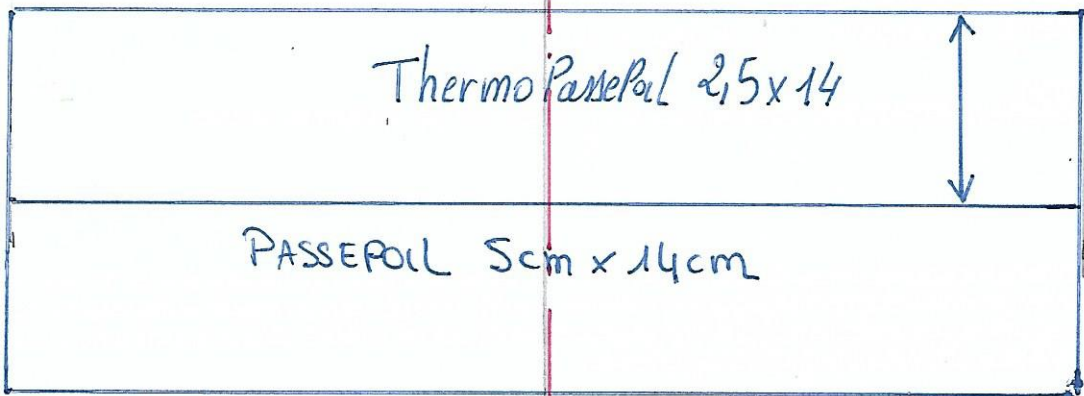 Thermo Passepoil 2,5 x 14
PASSEPOIL 5cm x 14cm